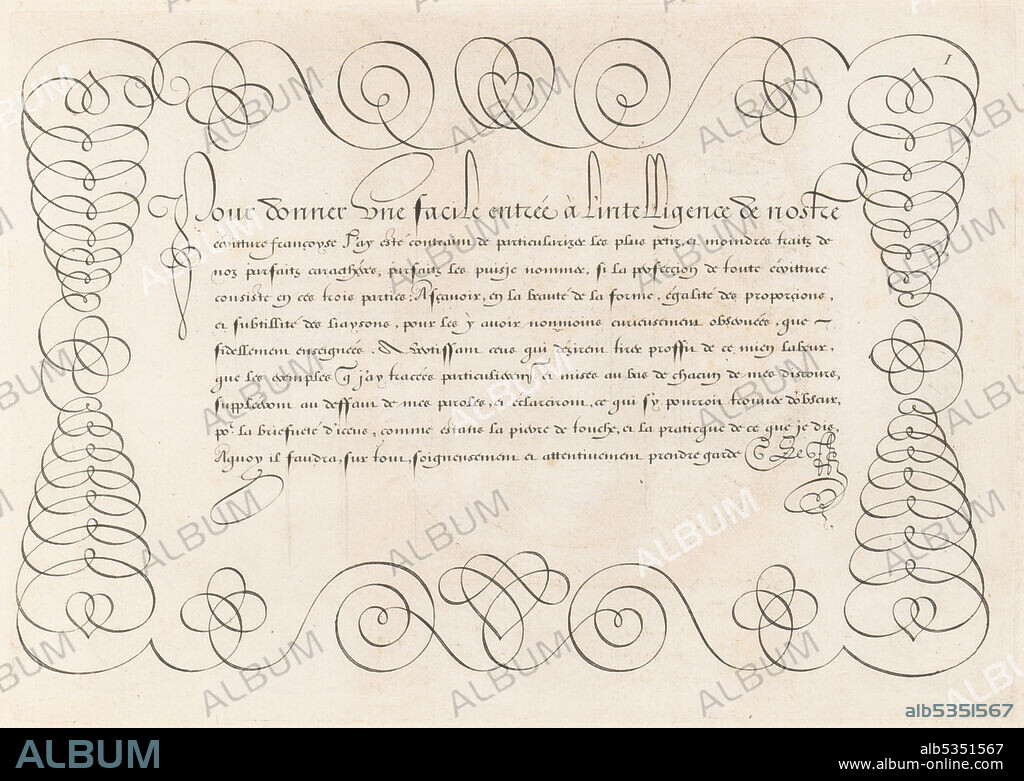 1
Pour donner Vne facile entrée à l'intelligence de nostre
escriture françoyse J'ay esté contraint de particularizer les plus petiz, et moindres traitz de
noz parfaitz caractheres, parfaitz les puisie nommer, si la perfection de toute écriture
consiste en ces trois parties: Asçauoir, en la beauté de la forme, égalité des proporcions,
et subtillité des liaysons, pour les y auoir nonmoins curieusement obseruées, que
fidellement enseignées. Auertissant ceus qui désirent tirer proffit de ce mien labeur,
que les exemples q j'ay tracées particulierement et mises au bas de chacun de mes discours,
suppléeront au deffaut de mes paroles, et éclarciront, ce qui s'y pourroit trouuer d'obscur,
por la briefueté d'iceus, comme estatis la pierre de touche, et la praticque de ce que je dis,
Aquoy il faudra, sur tout, soigneusement et attentivement prendre garde
ALBUM
alb5351567
ALBUM
alb5351567
www.album-online.com